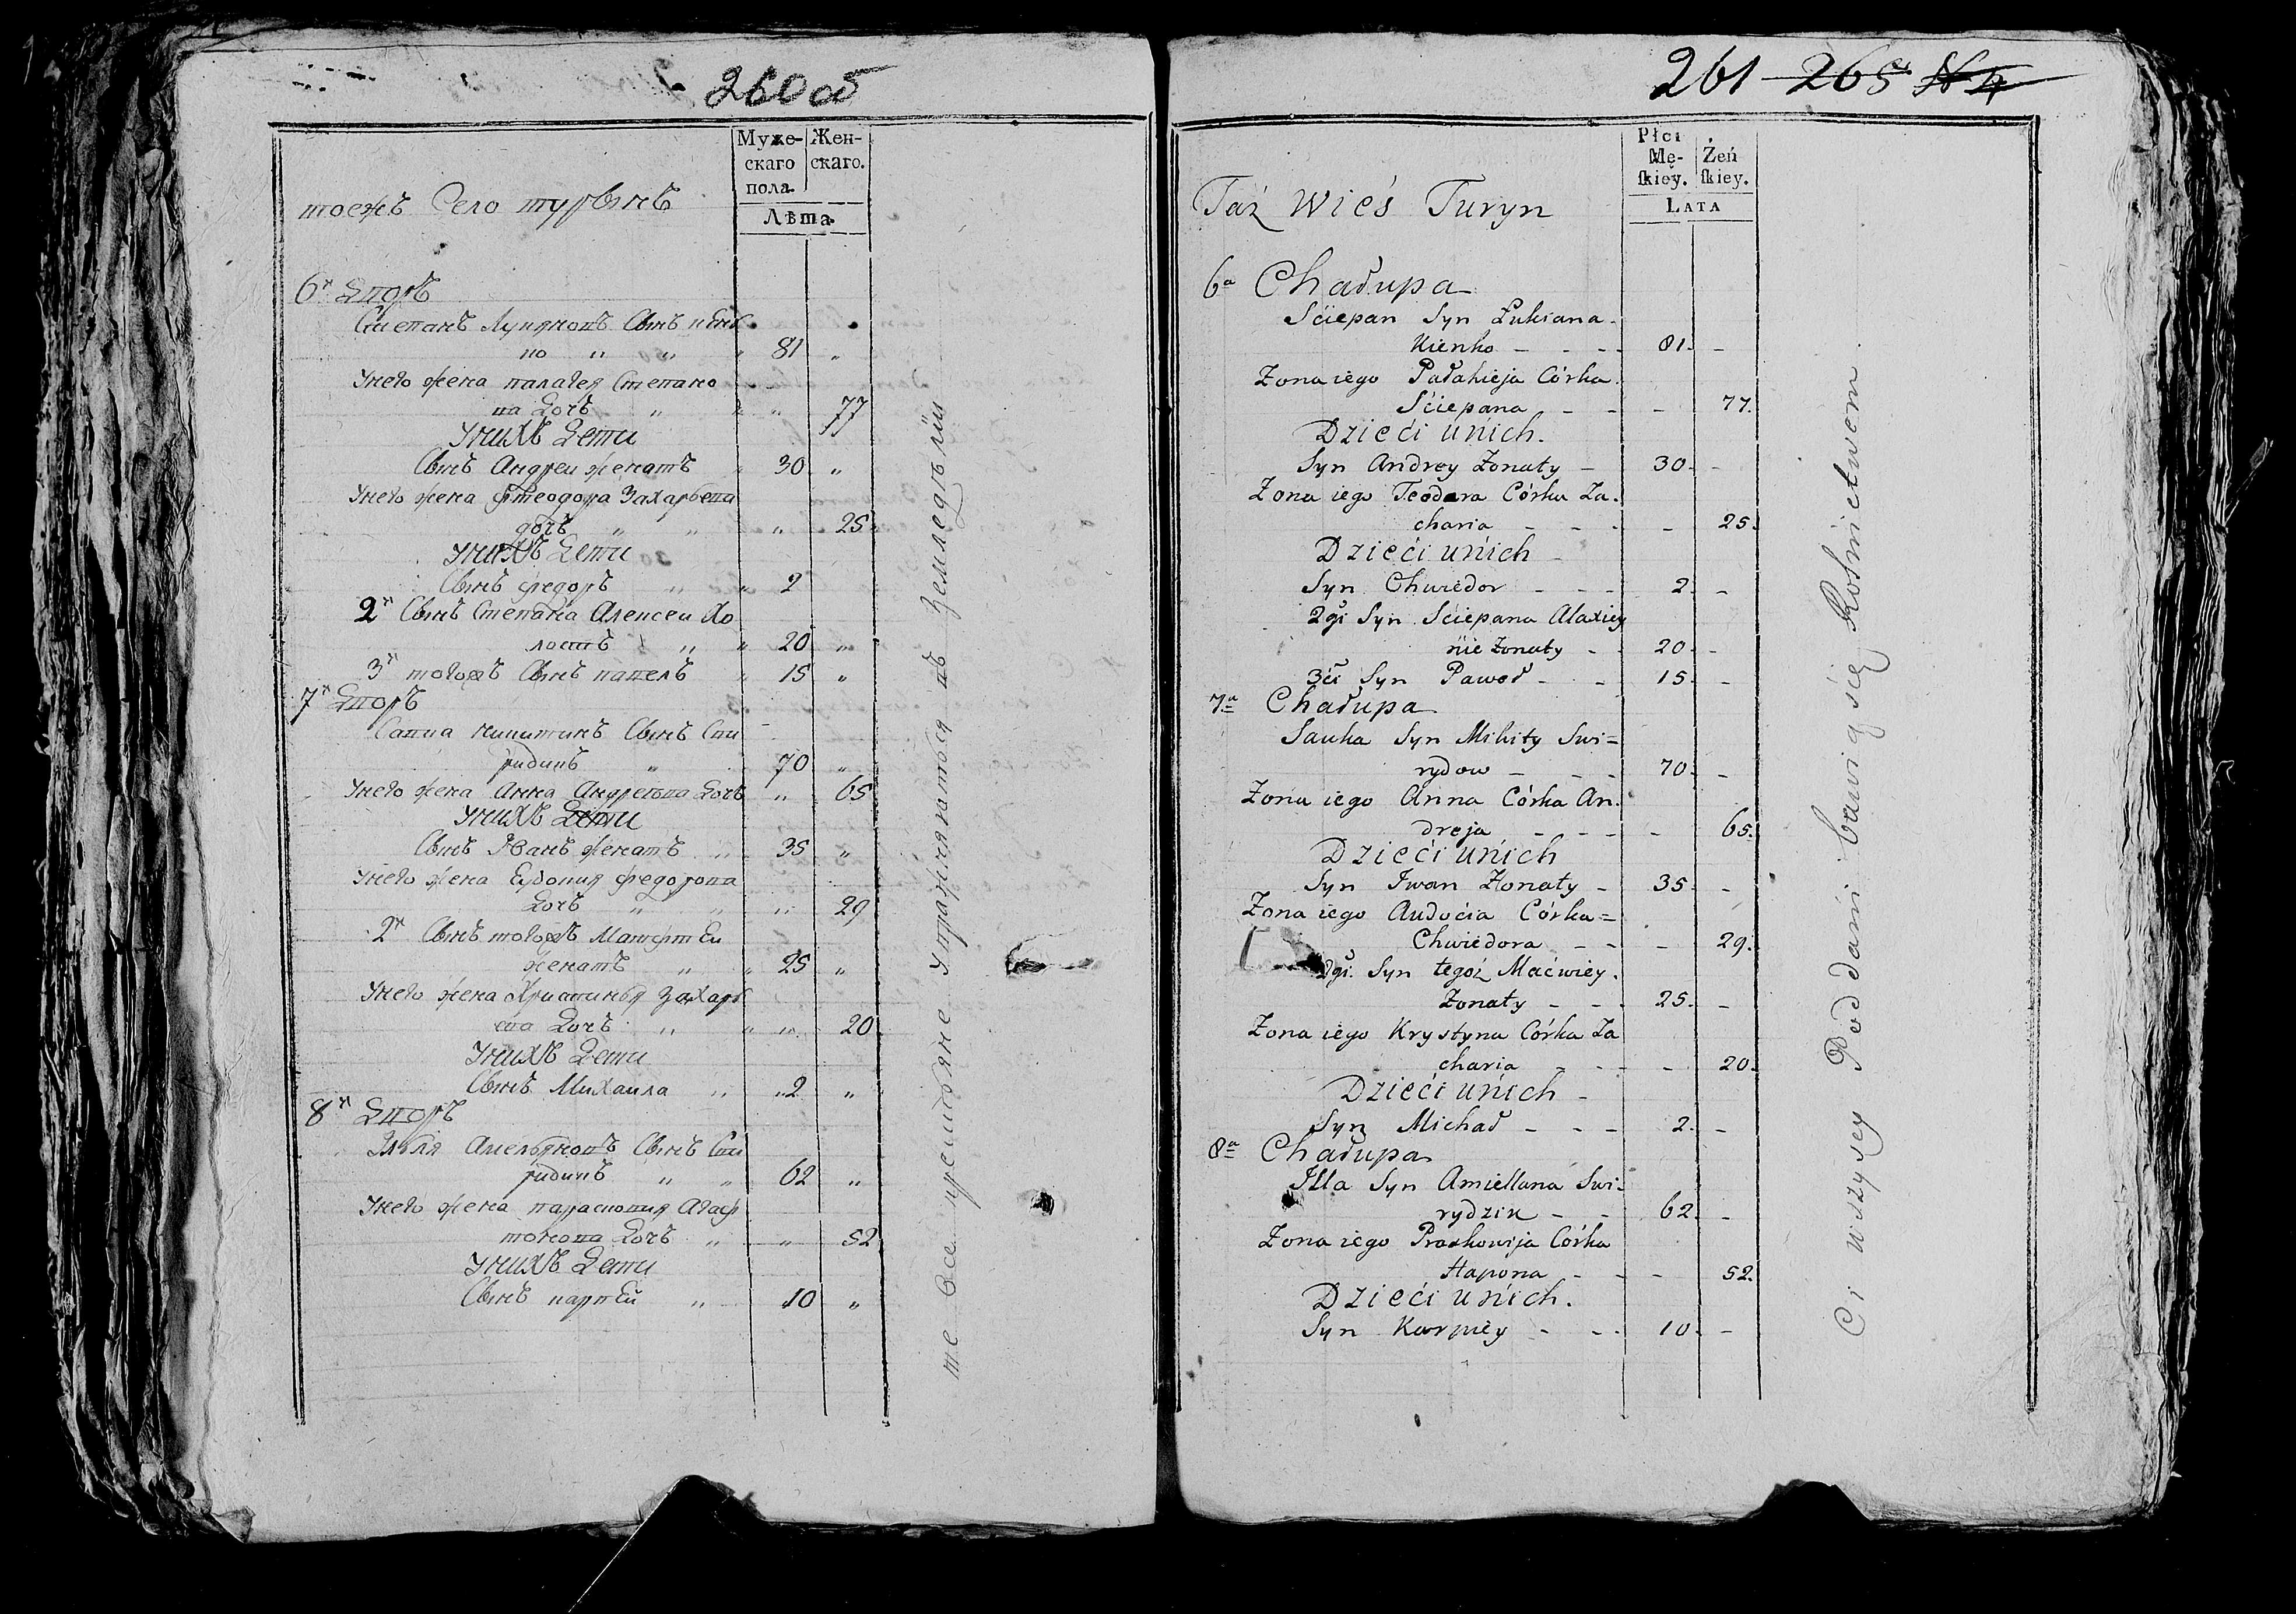 260 об
Муже-
скаго
пола.
Жен-
скаго.
Лѣта.
тоежъ Село турынъ
6й Дворъ
Степанъ Лукяновъ Сынъ Кѣнь
ко " " " 81 "
Унего жена палагея Степано
ва Дочь " " " 77
Унихъ Дети
Сынъ Андреи женатъ " 30 "
Унего жена фтеодора Захарьева
дочь " " " 25
Унихъ Дети
Сынъ федоръ " " 2
2й Сынъ Степана Алексеи Хо
лостъ " " 20 "
3й тогожъ Сынъ павелъ " 15 "
7й Дворъ
Савка никитинъ Сынъ Сви
ридивъ " 70 "
Унего жена Анна Андреева Дочь " 65
Унихъ Дети
Сынъ Иванъ женатъ " 35 "
Унего жена Евдокия федорова
Дочь " " " 29
2й Сынъ тогожъ Матфтѣи
женатъ " " 25 "
Унего жена Христинья Захарь
ева Дочь " " " 20
Унихъ Дети
Сынъ Михаила " " 2 "
8й Дворъ
Илья Амельяновъ Сынъ Сви
ридивъ " " 62 "
Унего жена парасковия Агаф
тонова Дочь " " 52
Унихъ Дети
Сынъ карпѣй " 10 "
те Все крестьяне упражняются въ Земледѣлии
261 265 N 4
Płci
Mę-
skiey.
Żeń
skiey.
LATA
Taż Wieś Turyn
6a Chałupa
Sciepan Syn Łukiana
Kienko - - - 81. -
Zona iego Pałahieja Córka
Sciepana - - - 77.
Dzieći unich.
Syn Andrey Zonaty - 30. -
Zona iego Teodora Córka Za-
charia - - - - 25.
Dzieći unich -
Syn Chwiedor - - - 2. -
2gi Syn Sciepana Alaxiey
nie Zonaty - - 20. -
3ći Syn Paweł - - 15. -
7a Chałupa
Sauka Syn Mikity Swi=
rydow - - - 70. -
Zona iego Anna Córka An-
dreja - - - - 65.
Dzieći unich
Syn Iwan Zonaty - 35. -
Zona iego Audocia Córka=
Chwiedora - - - 29.
2gi Syn tegoż Maćwiey.
Zonaty - - - 25. -
Zona iego Krystyna Córka Za
charia - - - - 20.
Dzieći unich -
Syn Michał - - - 2. -
8a Chałupa
Illa Syn Amiellana Swi-
rydzik - - 62. -
Zona iego Praskowija Córka
Hapona - - - 52.
Dzieći unich.
Syn Karpiey - - - 10. -
Ci wszyscy Poddani bawią się Rolnictwem.